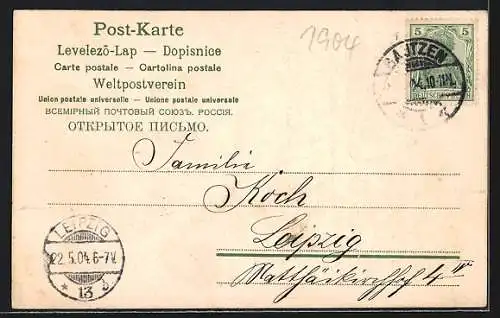 Post-Karte
1904
Levelező-Lap — Dopisnice
Carte postale — Cartolina postale
Weltpostverein
Union postale universelle — Unione postale universale
ВСЕМІРНЫЙ ПОЧТОВЫЙ СОЮЗЪ. РОССІЯ.
ОТКРЫТОЕ ПИСЬМО.
5 5
BAUTZEN
Familie
Koch
Leipzig
Matthäikirchhof 4 IV
LEIPZIG
22.5.04.6-7V.
* 13